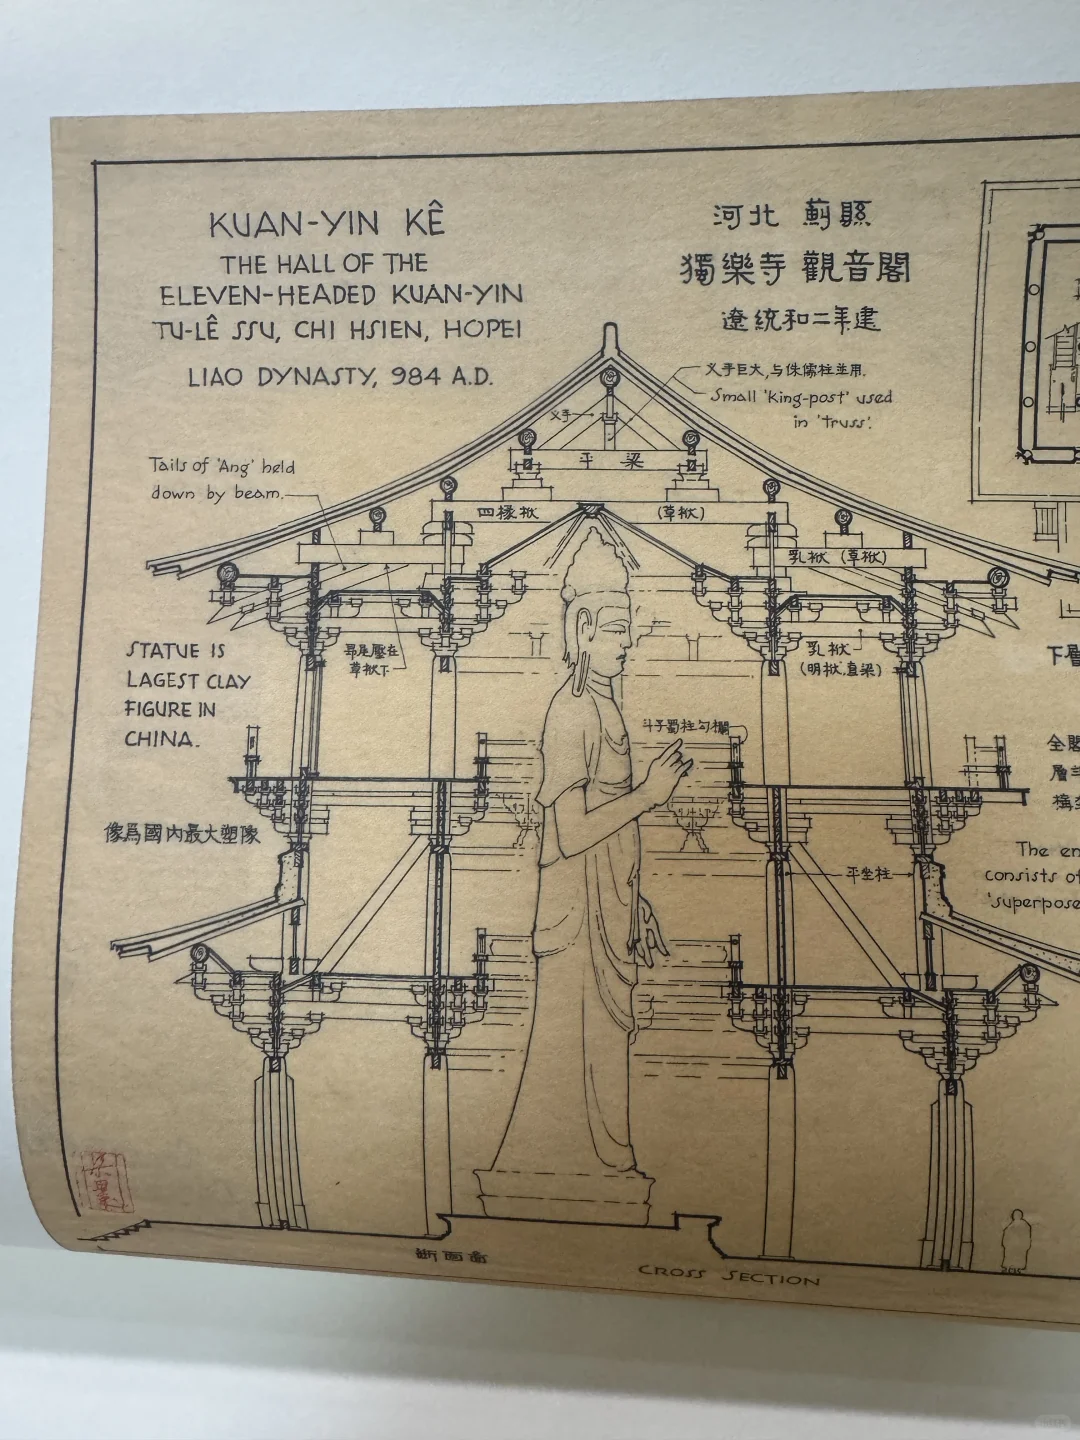 KUAN-YIN KÊ
THE HALL OF THE
ELEVEN-HEADED KUAN-YIN
TU-LÊ SSU, CHI HSIEN, HOPEI
LIAO DYNASTY, 984 A.D.
河北 薊縣
獨樂寺 觀音閣
遼統和二年建
叉手巨大,与侏儒柱並用.
Small 'King-post' used
in 'truss'.
叉手
平 梁
Tails of 'Ang' held
down by beam.
四椽栿
(草栿)
乳栿 (草栿)
STATUE IS
LAGEST CLAY
FIGURE IN
CHINA.
昂尾壓在
草栿下
乳栿
(明栿,直梁)
斗子蜀柱勾欄
像爲國內最大塑像
平坐柱
下層
全閣
層
構
The en
consists of
'superpose
断面畣
CROSS SECTION